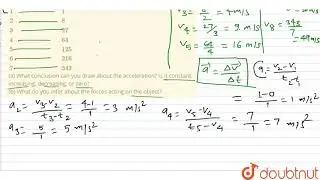 1 8
3 64
4 125
5 216
6 343
(a) What conclusion can you draw about the acceleration? Is it constant,
increasing, decreasing, or zero?
(b) What do you infer about the forces acting on the object?
V₄ = 27/3 = 9 m/s
V₅ = 64/4 = 16 m/s
V₈ = 343/7
= 49 m/s
a = ΔV/Δt
a₁ = V₂-V₁/t₂-t₁
= 1-0/1 = 1 m/s²
a₂ = V₃-V₂/t₃-t₂ = 4-1/1 = 3 m/s²
a₃ = 5/1 = 5 m/s²
a₄ = V₅-V₄/t₅-V₄ = 7/1 = 7 m/s²
doubtnut